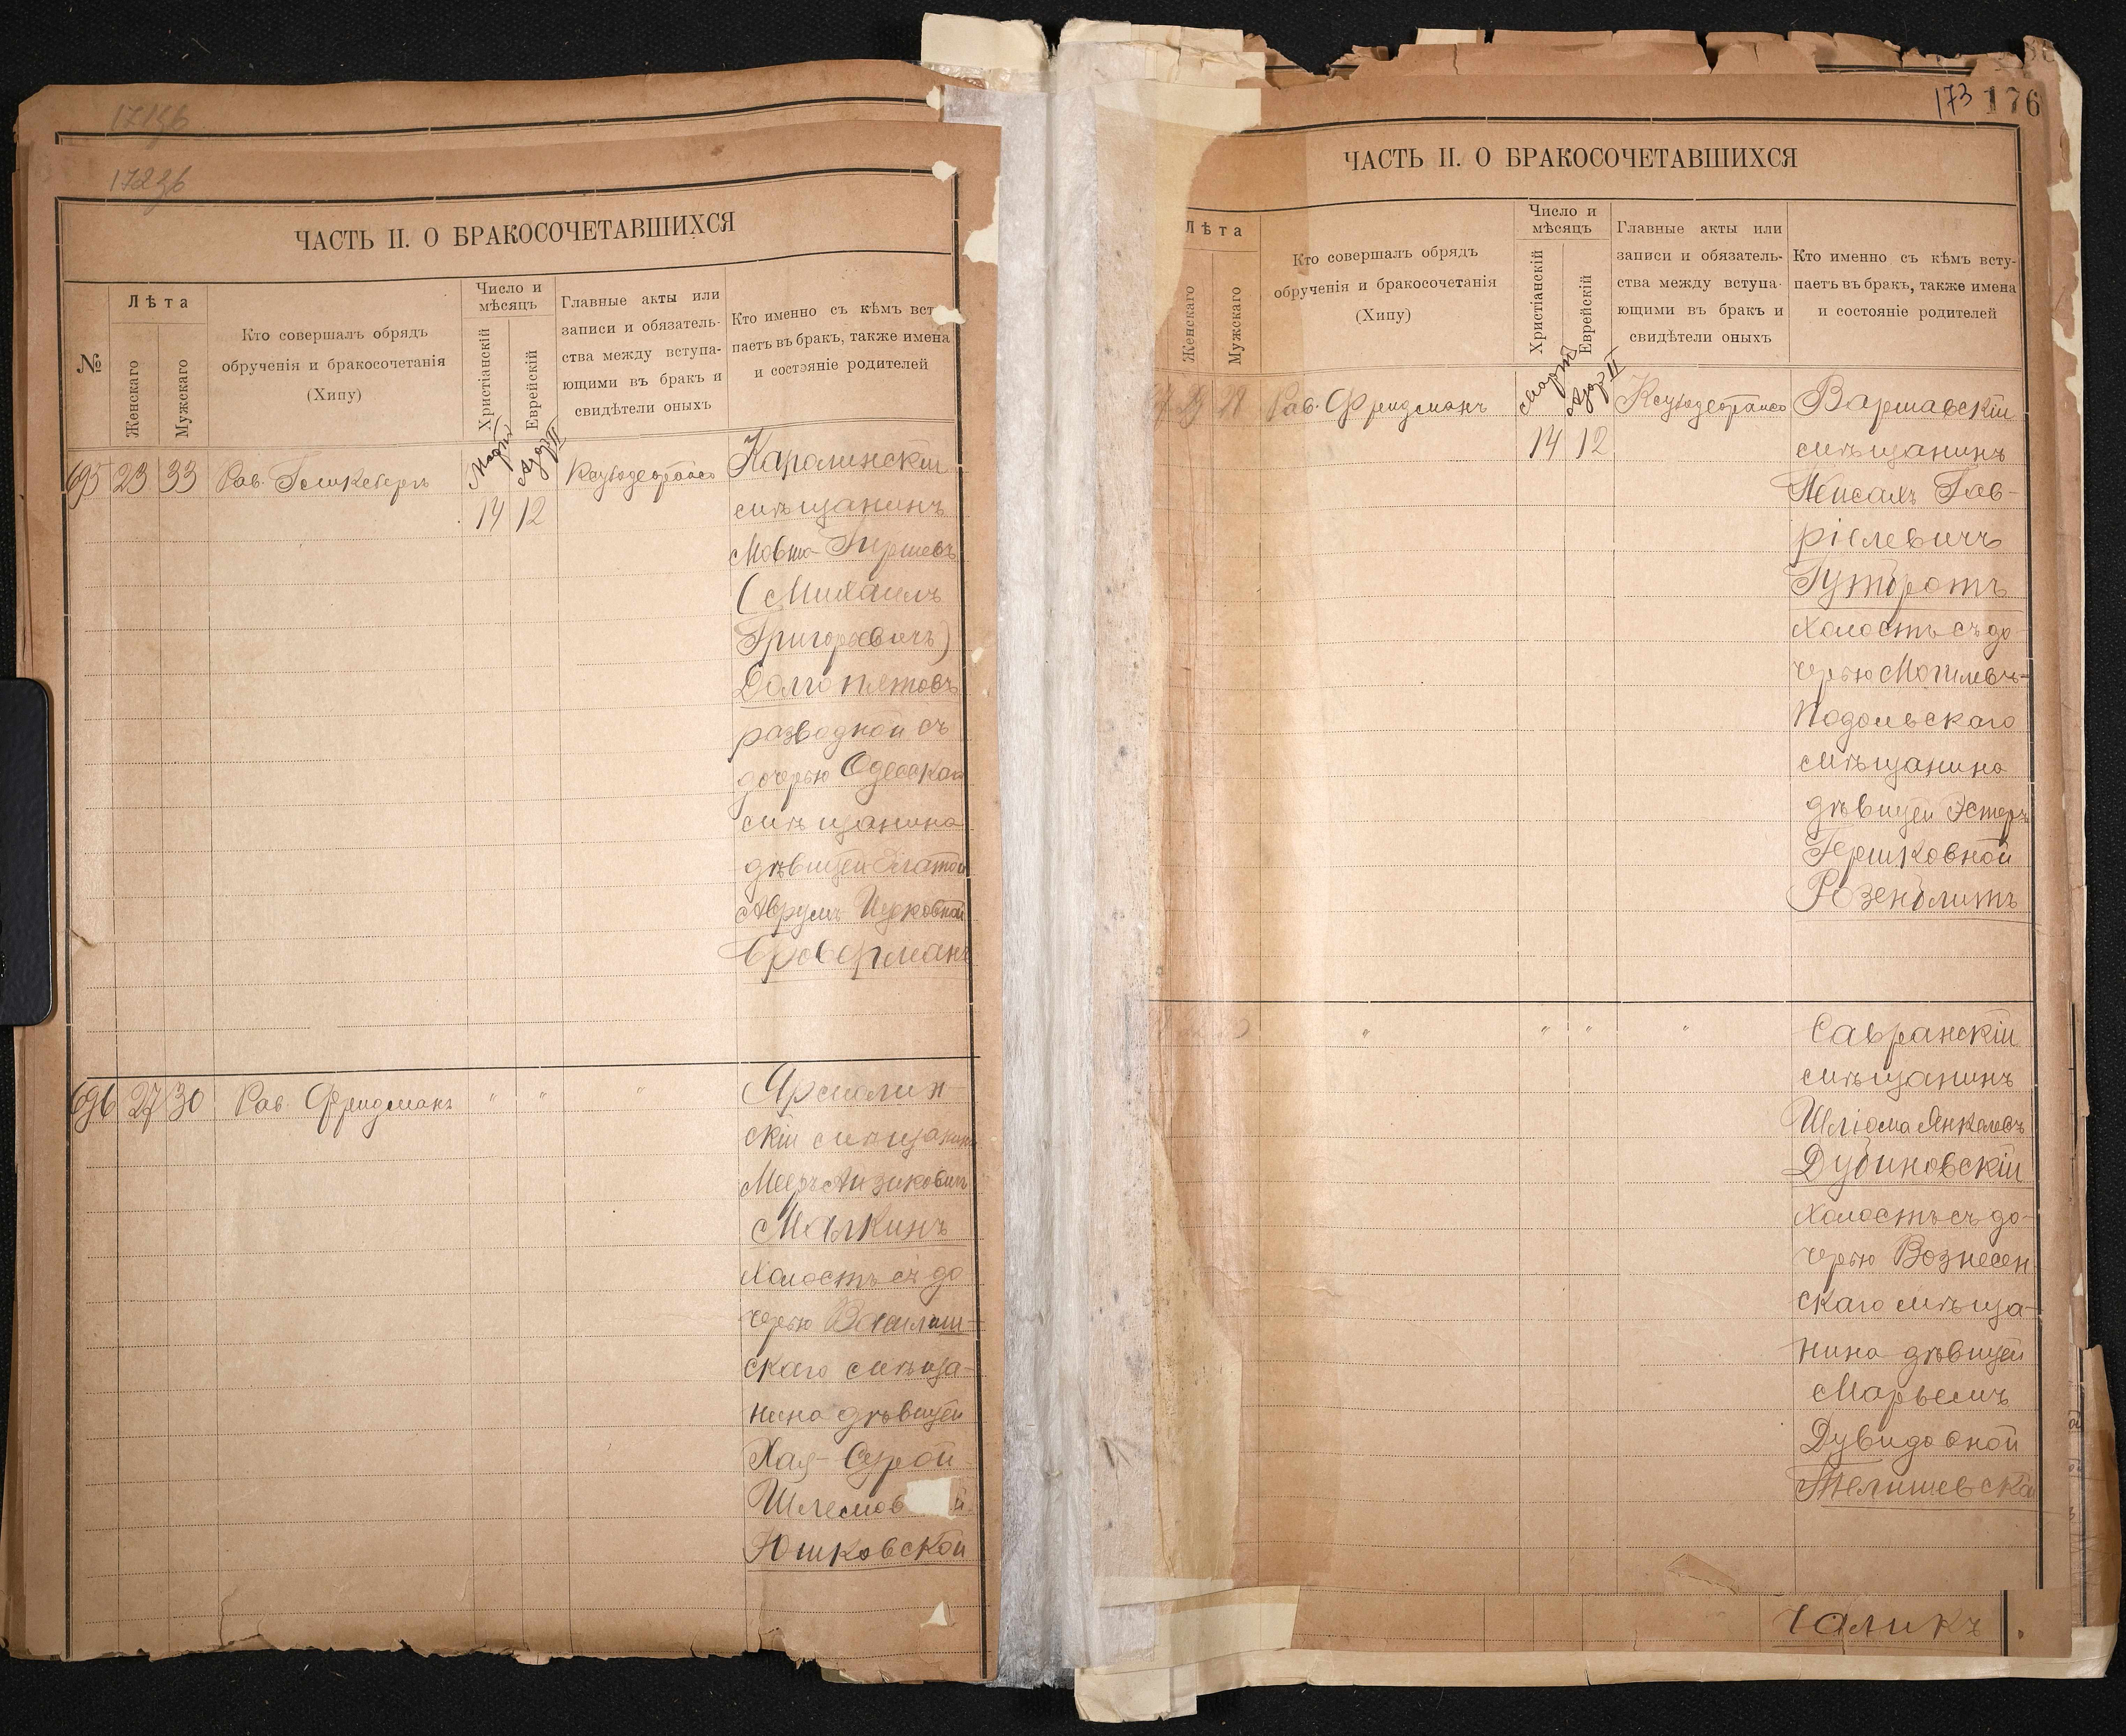 171 об
172 об
ЧАСТЬ II. О БРАКОСОЧЕТАВШИХСЯ
№
Лѣта
Женскаго
Мужскаго
Кто совершалъ обрядъ
обрученія и бракосочетанія
(Хипу)
Число и
мѣсяцъ
Христіанскій
Еврейскій
Главные акты или
записи и обязатель-
ства между вступа-
ющими въ бракъ и
свидѣтели оныхъ
Кто именно съ кѣмъ вст
паетъ въ бракъ, также имена
и состояніе родителей
695 23 33 Рав. Мартъ Адаръ II
14 12
Каролинскій
мѣщанинъ
Мовша Гершевъ
(Михаилъ
Григорьевичъ)
Долгопятовъ
разводной съ
дочерью Одесскаго
мѣщанина
дѣвицей Златой
Аврумъ Ицковной
Броверманъ
696 27 30 Рав. Фридманъ " " "
Ярмолин-
скій мѣщанинъ
Мееръ Айзиковичъ
Малкинъ
холостъ съ до
черью
скаго мѣща-
нина дѣвицей
Хая-Сурой
Шлемов й
Юшковской
173 176
ЧАСТЬ II. О БРАКОСОЧЕТАВШИХСЯ
Лѣта
Женскаго
Мужскаго
Кто совершалъ обрядъ
обрученія и бракосочетанія
(Хипу)
Число и
мѣсяцъ
Христіанскій
Еврейскій
Главные акты или
записи и обязатель-
ства между вступа-
ющими въ бракъ и
свидѣтели оныхъ
Кто именно съ кѣмъ всту-
паетъ въ бракъ, также имена
и состояніе родителей
28 Рав. Фридманъ Мартъ Адаръ II
14 12
Варшавскій
мѣщанинъ
Гав-
ріелевичъ
Гутротъ
холостъ съ до
черью Могилевъ-
Подольскаго
мѣщанина
дѣвицей Эстеръ
Гершковной
Розенблитъ
" " " "
Савранскій
мѣщанинъ
Шліома Янкелевъ
Дубиновскій
холостъ съ до-
черью Вознесен
скаго мѣща-
нина дѣвицей
Марьемъ
Дувидовной
Телишевской
Чаликъ